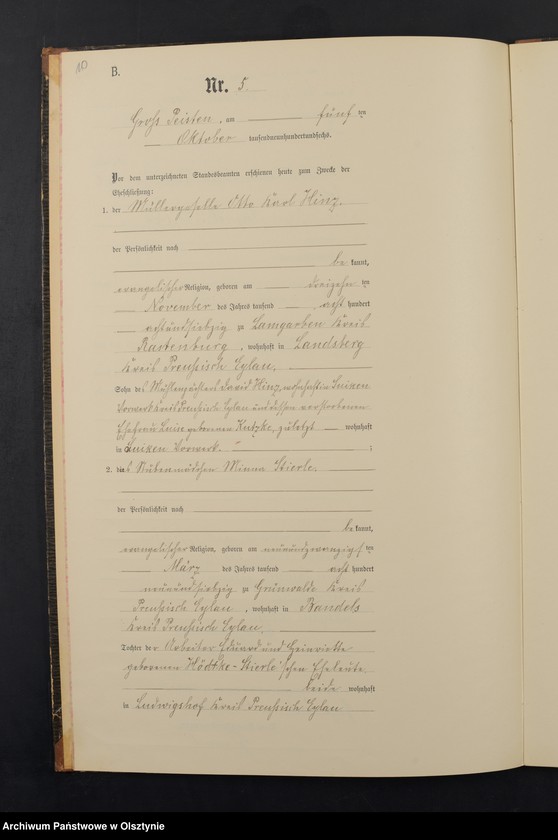 10
B.
Nr. 5.
Gross Peisten, am fünf ten
Oktober tausendneunhundertundsechs.
Vor dem unterzeichneten Standesbeamten erschienen heute zum Zwecke der
Eheschließung:
1. der Müllergeselle Otto Karl Hinz.
der Persönlichkeit nach
be kannt,
evangelischer Religion, geboren am dreizehn ten
November des Jahres tausend acht hundert
achtundsiebzig zu Lamgarben Kreis
Rastenburg, wohnhaft in Landsberg
Kreis Preußisch Eylau.
Sohn des Mühlenpächters David Hinz, wohnhaft in
Vorwerk Kreis Preußisch Eylau und dessen verstorbenen
Ehefrau Luise geborenen Kutzke, zuletzt wohnhaft
in Vorwerk. ;
2. die Stubenmädchen Minna Stierle.
der Persönlichkeit nach
be kannt,
evangelischer Religion, geboren am neunundzwanzigs ten
März des Jahres tausend acht hundert
neunundsiebzig zu Grünwalde Kreis
Preußisch Eylau, wohnhaft in Bandels
Kreis Preußisch Eylau.
Tochter der Arbeiter Eduard und Heinriette
geborenen Hödtke-Stierle'schen Eheleute,
beide wohnhaft
in Ludwigshof Kreis Preußisch Eylau
Archiwum Państwowe w Olsztynie